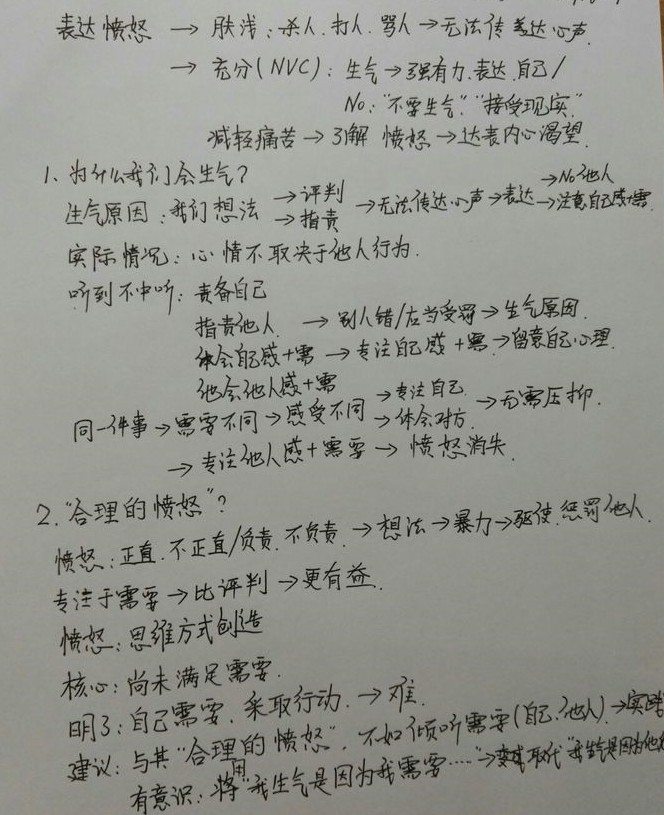 表达愤怒 → 肤浅：杀人、打人、骂人 → 无法传达心声.
→ 充分(NVC)：生气 → 强有力、表达自己/
No："不要生气" "接受现实"
减轻痛苦 → 了解愤怒 → 达表内心渴望.
1、为什么我们会生气？
生气原因：我们想法 → 评判 → 指责 → 无法传达心声 → 表达 → No他人 → 注意自己感+需.
实际情况：心情不取决于他人行为.
听到不中听：责备自己
指责他人. → 别人错/应当受罚 → 生气原因.
体会自己感+需 → 专注自己感+需. → 留意自己心理.
他会他人感+需
同一件事 → 需要不同 → 感受不同 → 专注自己. → 体会对方. → 无需压抑.
→ 专注他人感+需要 → 愤怒消失.
2. "合理的愤怒"？
愤怒：正直.不正直/负责.不负责. → 想法 → 暴力 → 驱使.惩罚他人.
专注于需要 → 比评判 → 更有益.
愤怒：思维方式创造
核心：尚未满足需要.
明了：自己需要.采取行动. → 难.
建议：与其"合理的愤怒"，不如倾听需要(自己.他人). → 实践
有意识：用"我生气是因为我需要……" → 取代"我生气是因为他